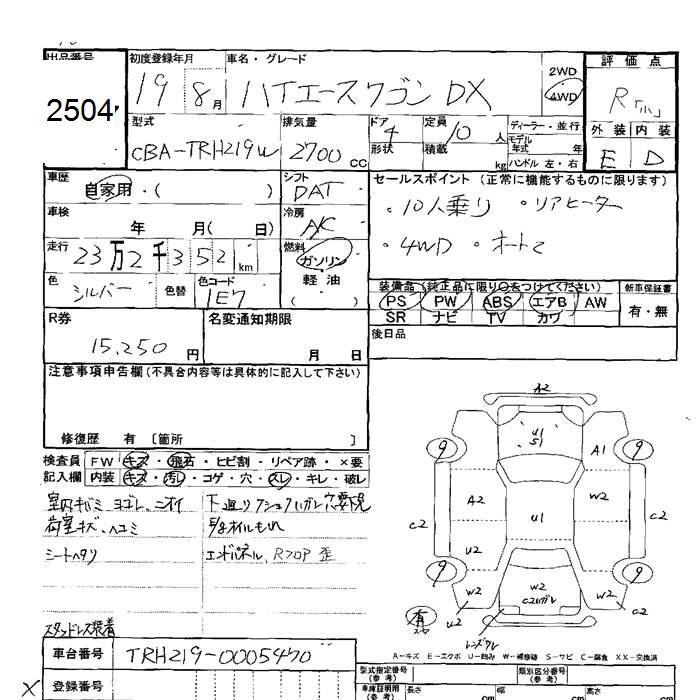 出品番号
2504
初度登録年月
19年8月
車名・グレード
ハイエースワゴン DX
2WD
4WD
評価点
R
外装 内装
E D
型式
CBA-TRH219W
排気量
2700 CC
ドア 4
形状
定員 10 人
積載 kg
ディーラー・並行
モデル年式 年
ハンドル 左・右
車歴
自家用・( )
シフト
DAT
セールスポイント (正常に機能するものに限ります)
・10人乗り ・リアヒーター
・4WD ・オートマ
車検
年 月( 日)
冷房
A/C
走行
23万2千352 km
燃料
ガソリン
軽油
( )
色
シルバー
色替
色コード
1E7
装備品 (純正品に限り○をつけてください)
PS PW ABS エアB AW
SR ナビ TV カワ
新車保証書
有・無
R券
15,250 円
名変通知期限
月 日
後日品
注意事項申告欄(不具合内容等は具体的に記入して下さい)
修復歴 有 [箇所 ]
検査員 FW キズ・飛石・ヒビ割・リペア跡・×要
記入欄 内装 キズ・汚レ・コゲ・穴・スレ・キレ・破レ
室内キバミ、ヨゴレ、ニオイ
荷室キズ、ヘコミ
シートヘタリ
スタッドレス装着
下廻りクション ハガレ穴要下見
E/gオイルもれ
エンドパネル、Rフロア 歪
A2
U1
S1
9
A1
9
A2
W2
C2
U1
C2
U2
9
W2
W2
C2ハガレ
W2
9
U2
有
レンズワレ
A-キズ E-エクボ U-凹み W-補修跡 S-サビ C-腐食 XX-交換済
車台番号
TRH219-0005470
登録番号
X
型式指定番号
(参考)
類別区分番号
(参考)
車庫証明用
(参考)
長さ cm
幅 cm
高さ cm